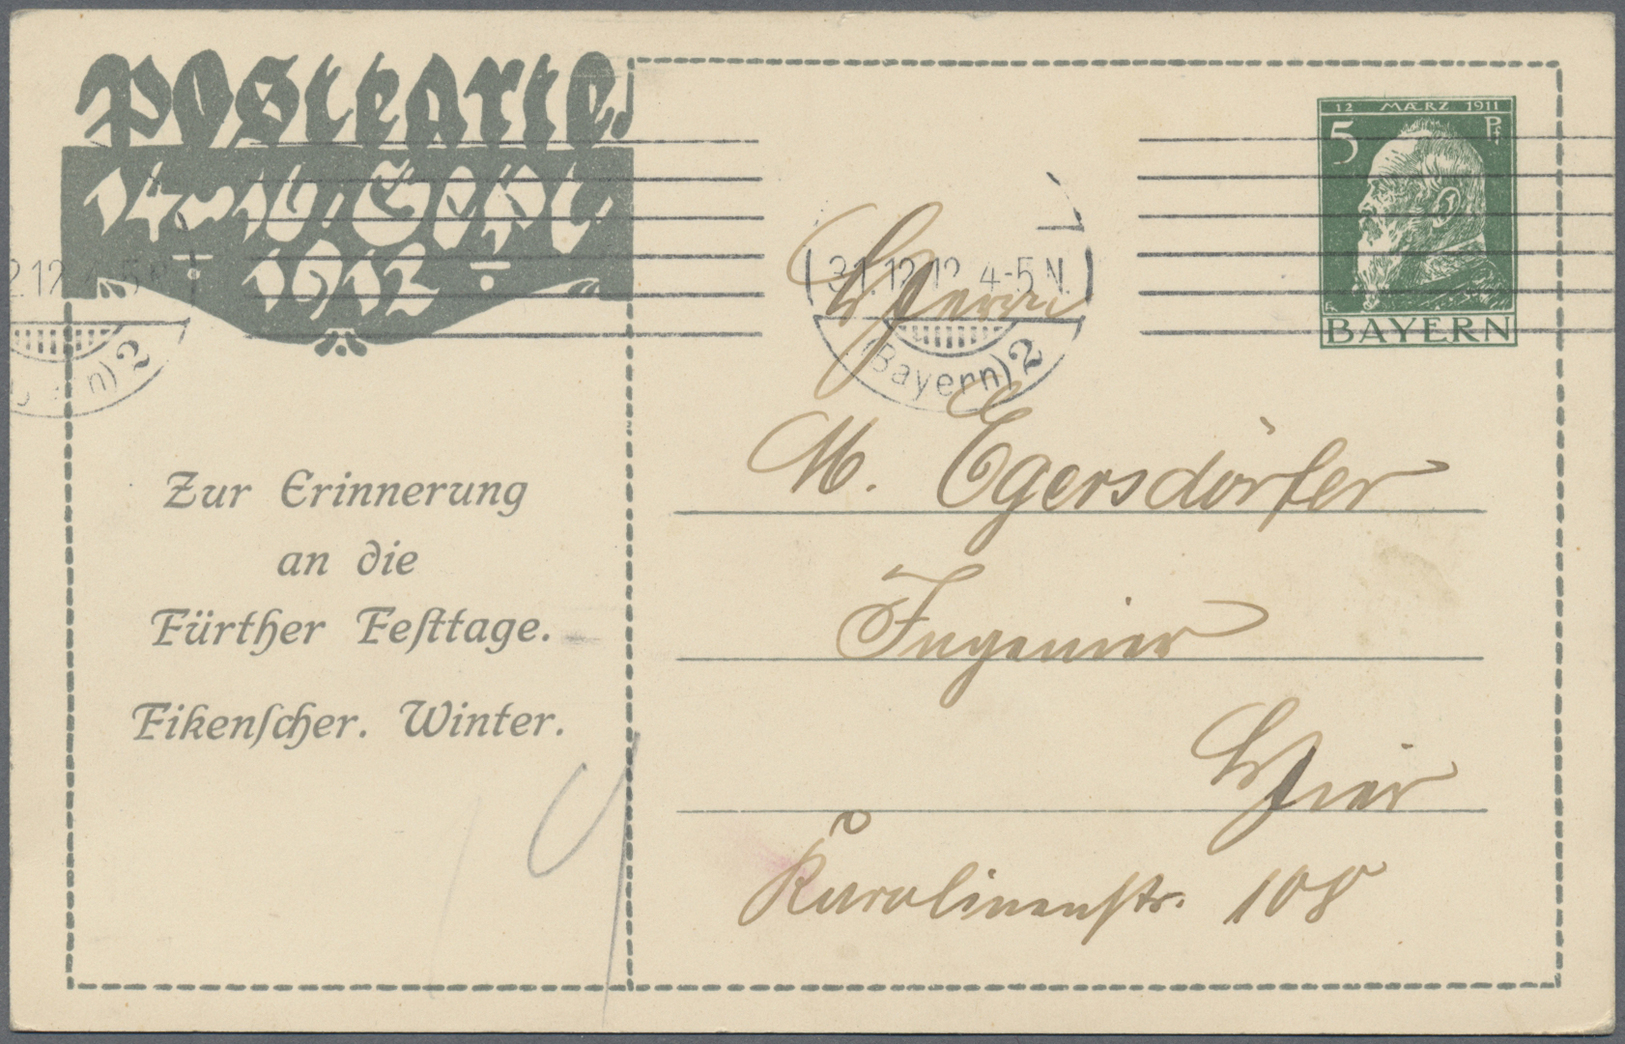 Postkarte.
14-16. Sept.
1912.
Zur Erinnerung
an die
Fürther Feſttage.
Eikenſcher. Winter.
12 MÆRZ 1911
5 Pf
BAYERN
31.12.12. 4-5 N.
(Bayern) 2
Herrn
M. Egersdörfer
Ingenier
Hier
Karolinenstr. 108